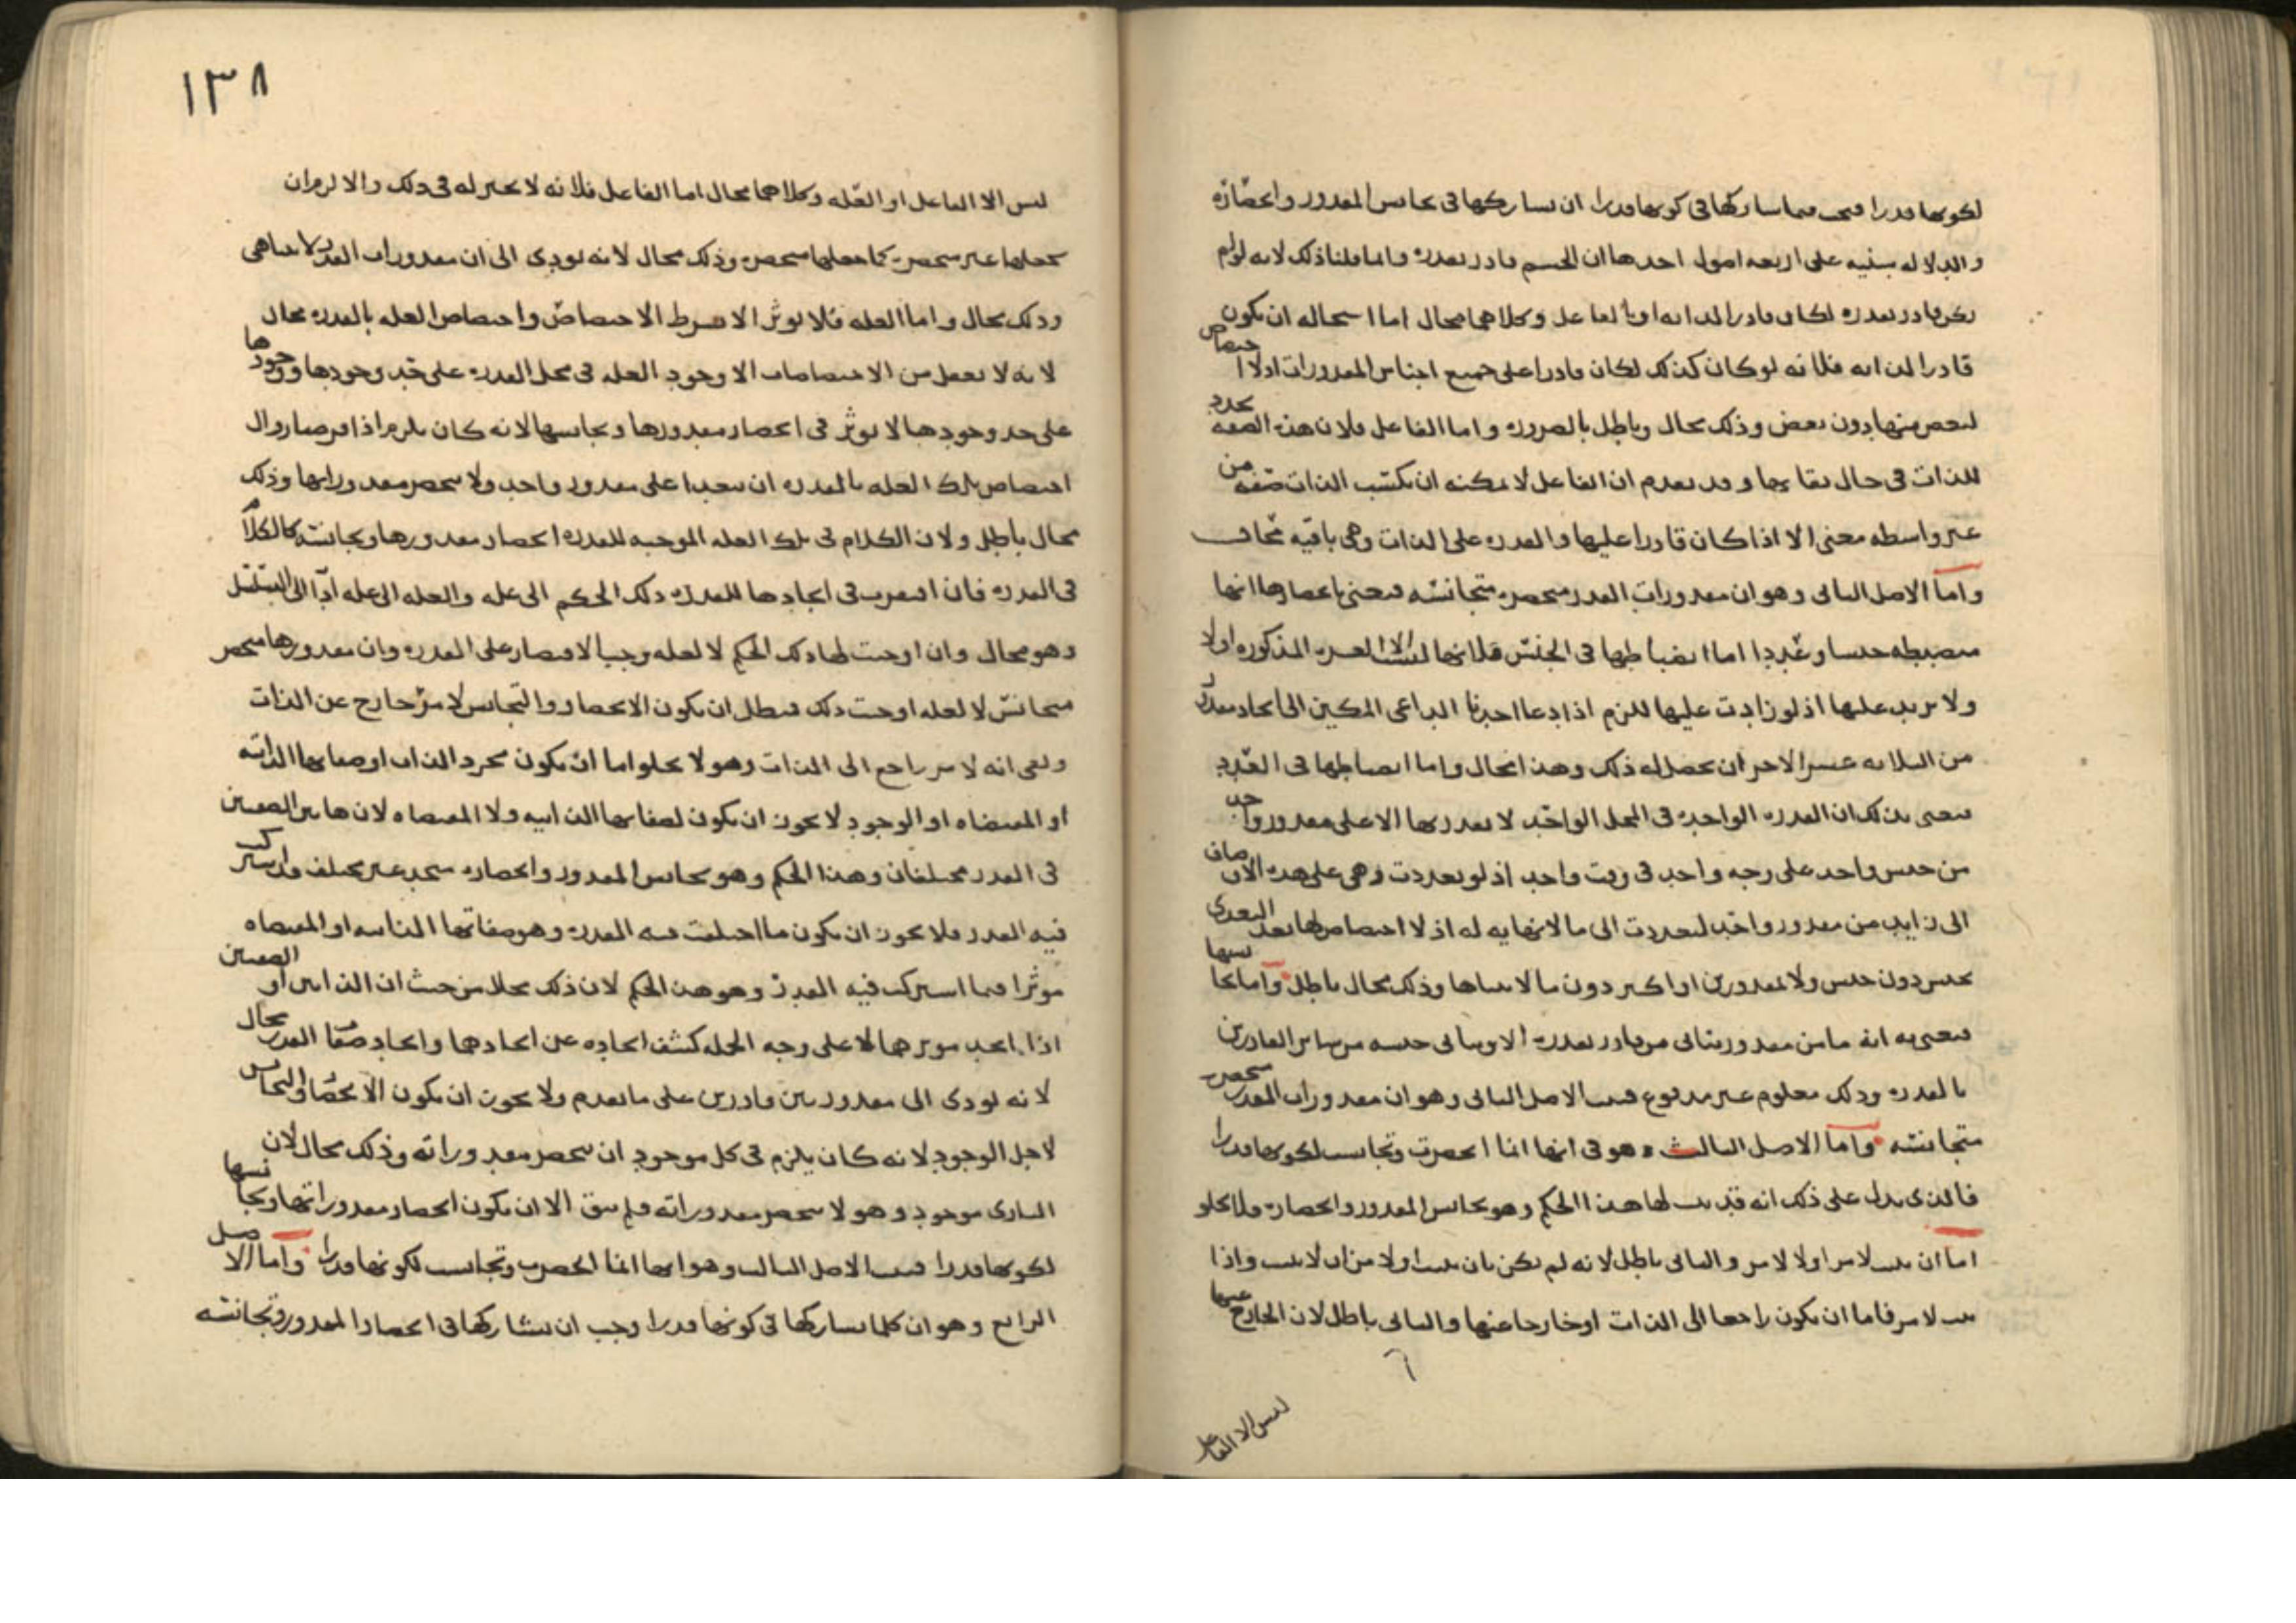 لكونها قدرا فيجب فيما شاركها في كونها قدرا ان يشاركها في تجانس المقدور وانحصاره
والدلالة مبنيه على اربعه اصول احدها ان الجسم قادر بقدره وانما قلنا ذلك لانه لو لم
يكن قادر بقدره لكان قادرا لذاته او بالفاعل وكلاهما محال اما استحاله ان يكون
قادرا لذاته فلانه لو كان كذلك لكان قادرا على جميع اجناس المقدورات اذ لا اختصاص
لبعض منها دون بعض وذلك محال وباطل بالضروره واما الفاعل فلان هذه الصفه تجدد
للذات في حال بقائها وقد تقدم ان الفاعل لا يمكنه ان يكسب الذات صفه من
غير واسطه معنى الا اذا كان قادرا عليها والقدره على الذات وهي باقيه محال
واما الاصل الثاني وهو ان مقدورات القدر منحصره متجانسه فنعني بانحصارها انها
منضبطه جنسا وعددا اما انضباطها في الجنس فلانها ليست الا العشره المذكوره اولا
ولا يزيد عليها اذ لو زادت عليها للزم اذا دعا احدنا الداعي المكين الى ايجاد مقدور
من الثلاثه عشر الاخر ان يحصل له ذلك وهذا محال واما انضباطها في العدد
فنعني بذلك ان القدره الواحده في المحل الواحد لا يقدر بها الا على مقدور واحد
من جنس واحد على وجه واحد في وقت واحد اذ لو تعددت وهي على هذه الاوصاف
الى زايد من مقدور واحد لتعددت الى ما لا نهايه له اذ لا اختصاص لها بعد التعدي
بجنس دون جنس ولا بمقدورين او اكثر دون ما لا يتناها وذلك محال باطل واما تجانسها
فنعني به انه ما من مقدور يتاتى من قادر بقدره الا ويتاتى جنسه من سائر القادرين
بالقدره وذلك معلوم غير مدفوع فثبت الاصل الثاني وهو ان مقدورات القدر منحصره
متجانسه واما الاصل الثالث وهو في انها انما انحصرت وتجانست لكونها قدرا
فالذي يدل على ذلك انه قد ثبت لها هذا الحكم وهو تجانس المقدور وانحصاره فلا يخلو
اما ان يثبت لامر او لا لامر والثاني باطل لانه لم يكن بان يثبت اولا من ان لا يثبت واذا
ثبت لامر فاما ان يكون راجعا الى الذات او خارجا عنها والثاني باطل لان الخارج عنها
ليس الا الفاعل
١٣٨
ليس الا الفاعل او العله وكلاهما محال اما الفاعل فلانه لا تخير له في ذلك والا لزم ان
يجعلها غير منحصره كما جعلها منحصره وذلك محال لانه يودي الى ان مقدورات القدر لا تتناهى
وذلك محال واما العله فلا توثر الا بشرط الاختصاص واختصاص العله بالقدره محال
لانه لا يعقل من الاختصاصات الا وجود العله في محل القدره على حد وجودها ووجودها
على حد وجودها لا يوثر في انحصار مقدورها وتجانسها لانه كان يلزم اذا فرضنا زوال
اختصاص تلك العله بالقدره ان يتعدا على مقدور واحد ولا ينحصر مقدوراتها وذلك
محال باطل ولان الكلام في تلك العله الموجبه للقدره انحصار مقدورها وتجانسه كالكلام
في القدره فان افتقرت في ايجادها للقدره ذلك الحكم الى عله والعله الى عله ادا الى التسلسل
وهو محال وان اوجبت لها ذلك الحكم لا لعله وجب الاقتصار على القدره وان مقدورها منحصر
متجانس لا لعله اوجبت ذلك فبطل ان يكون الانحصار والتجانس لامر خارج عن الذات
وبقي انه لامر راجع الى الذات وهو لا يخلو اما ان يكون مجرد الذات او صفاتها الذاتيه
او المقتضاه او الوجود لا يجوز ان يكون لصفاتها الذاتيه ولا المقتضاه لان هاتين الصفتين
في القدر مختلفتان وهذا الحكم وهو تجانس المقدور وانحصاره متحد غير مختلف قد اشترك
فيه القدر فلا يجوز ان يكون ما اختلفت فيه القدره وهو صفاتها الذاتيه او المقتضاه
موثرا فيما اشتركت فيه القدر وهو هذا الحكم لان ذلك بخلاف من حيث ان الذاتين او الصفتين
اذا اتحد موثرهما لا على وجه الجمله كشف اتحاده عن اتحادهما واتحاد صفات القدر محال
لانه يودي الى مقدور بين قادرين على ما تقدم ولا يجوز ان يكون الانحصار والتجانس
لاجل الوجود لانه كان يلزم في كل موجود ان ينحصر مقدوراته وذلك محال لان
الباري موجود وهو لا ينحصر مقدوراته فلم يبق الا ان يكون انحصار مقدوراتها وتجانسها
لكونها قدرا فثبت الاصل الثالث وهو انها انما انحصرت وتجانست لكونها قدرا واما الاصل
الرابع وهو ان كلما شاركها في كونها قدرا وجب ان يشاركها في انحصار المقدور وتجانسه